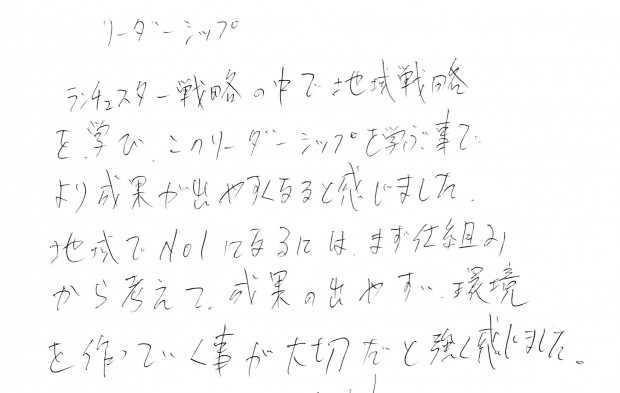 リーダーシップ
ランチェスター戦略の中で地域戦略
を学び、このリーダーシップを学ぶ事で
より成果が出やすくなると感じました。
地域でNo1になるには、まず仕組み
から考えて、成果の出やすい環境
を作っていく事が大切だと強く感じました。